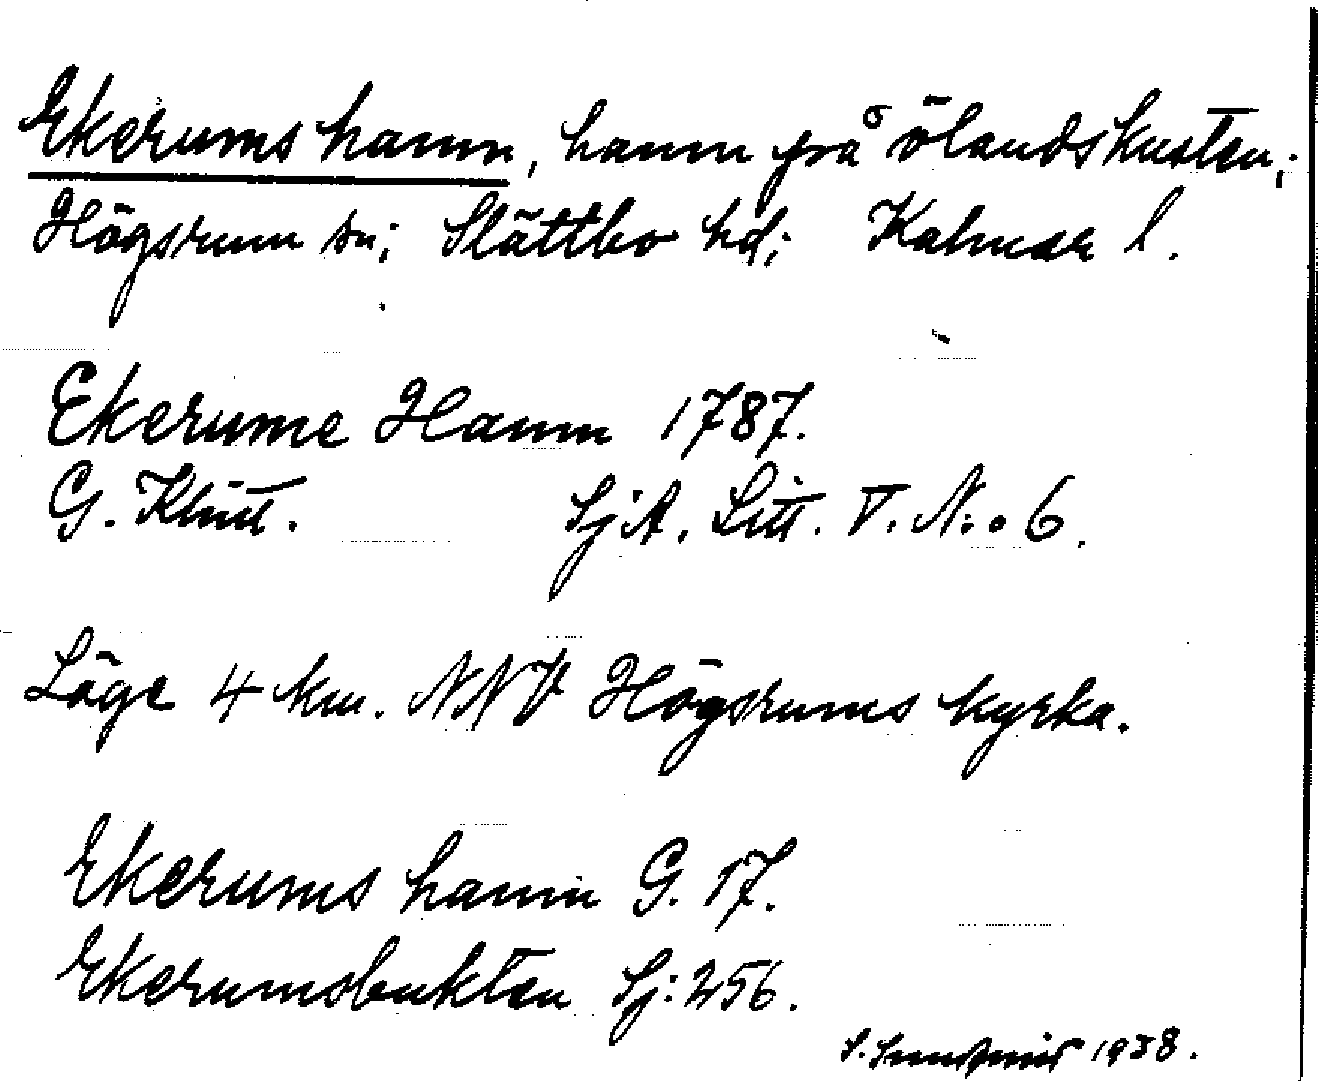 Ekerums hamn, hamn på ölandskusten;
Högsrum sn; Slättbo hd; Kalmar l.
Ekerume Hamn 1787.
G. Klint. SjA. Litt. V. N:o 6.
Läge 4 km. NNV Högsrums kyrka.
Ekerums hamn G. 17.
Ekerumsbukten Sj: 256.
1938.